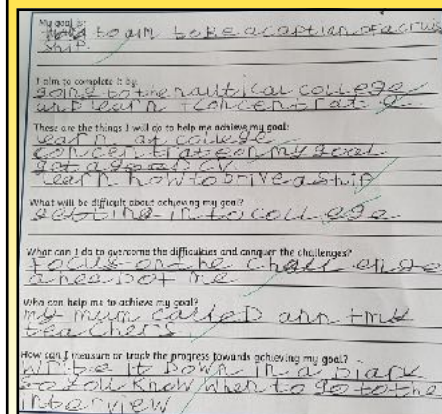 My goal is:
to aim to be a captian of a cruis
ship.
I aim to complete it by:
going to the nautical college
and learn + concentrate
These are the things I will do to help me achieve my goal:
learn at college
concentrate on my goal
get a good CV
learn how to drive a ship
What will be difficult about achieving my goal?
getting in to college
What can I do to overcome the difficulties and conquer the challenges?
focus on the challenge
ahead of me
Who can help me to achieve my goal?
my mum called ann + my
teachers
How can I measure or track the progress towards achieving my goal?
write it down in a diary
so you know when to go to the
interview